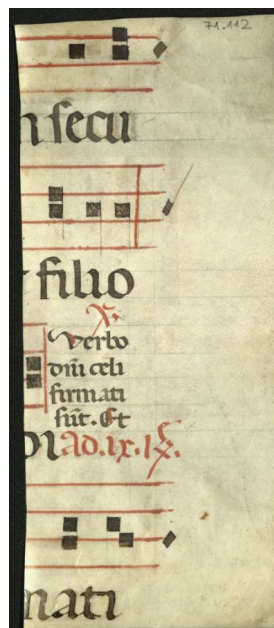 71.112
n secu
filio
℣.
Verbo
dñi celi
firmati
sũt. Et
ad.ix.
mati